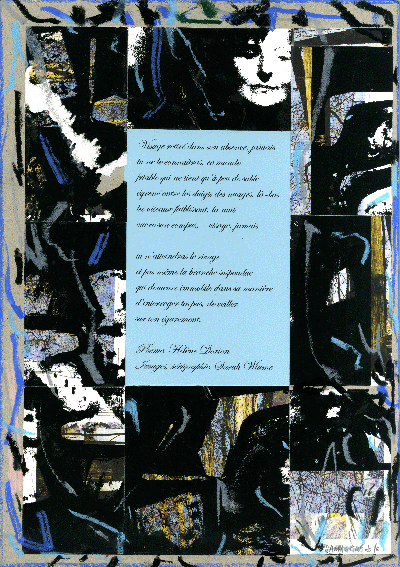 Visage rétif dans son absence, jamais
tu ne le connaîtras, ce monde
friable qui ne tient qu'à peu de sable
égrené entre les doigts des nuages, là-bas
les oiseaux faiblissent, la nuit
                    visage, jamais
tu n'atteindras le rivage
et pas même la branche suspendue
qui demeure immobile dans sa manière
d'interroger tes pas, de veiller
sur ton égarement.
Poèmes Hélène Dorion
Images, sérigraphies